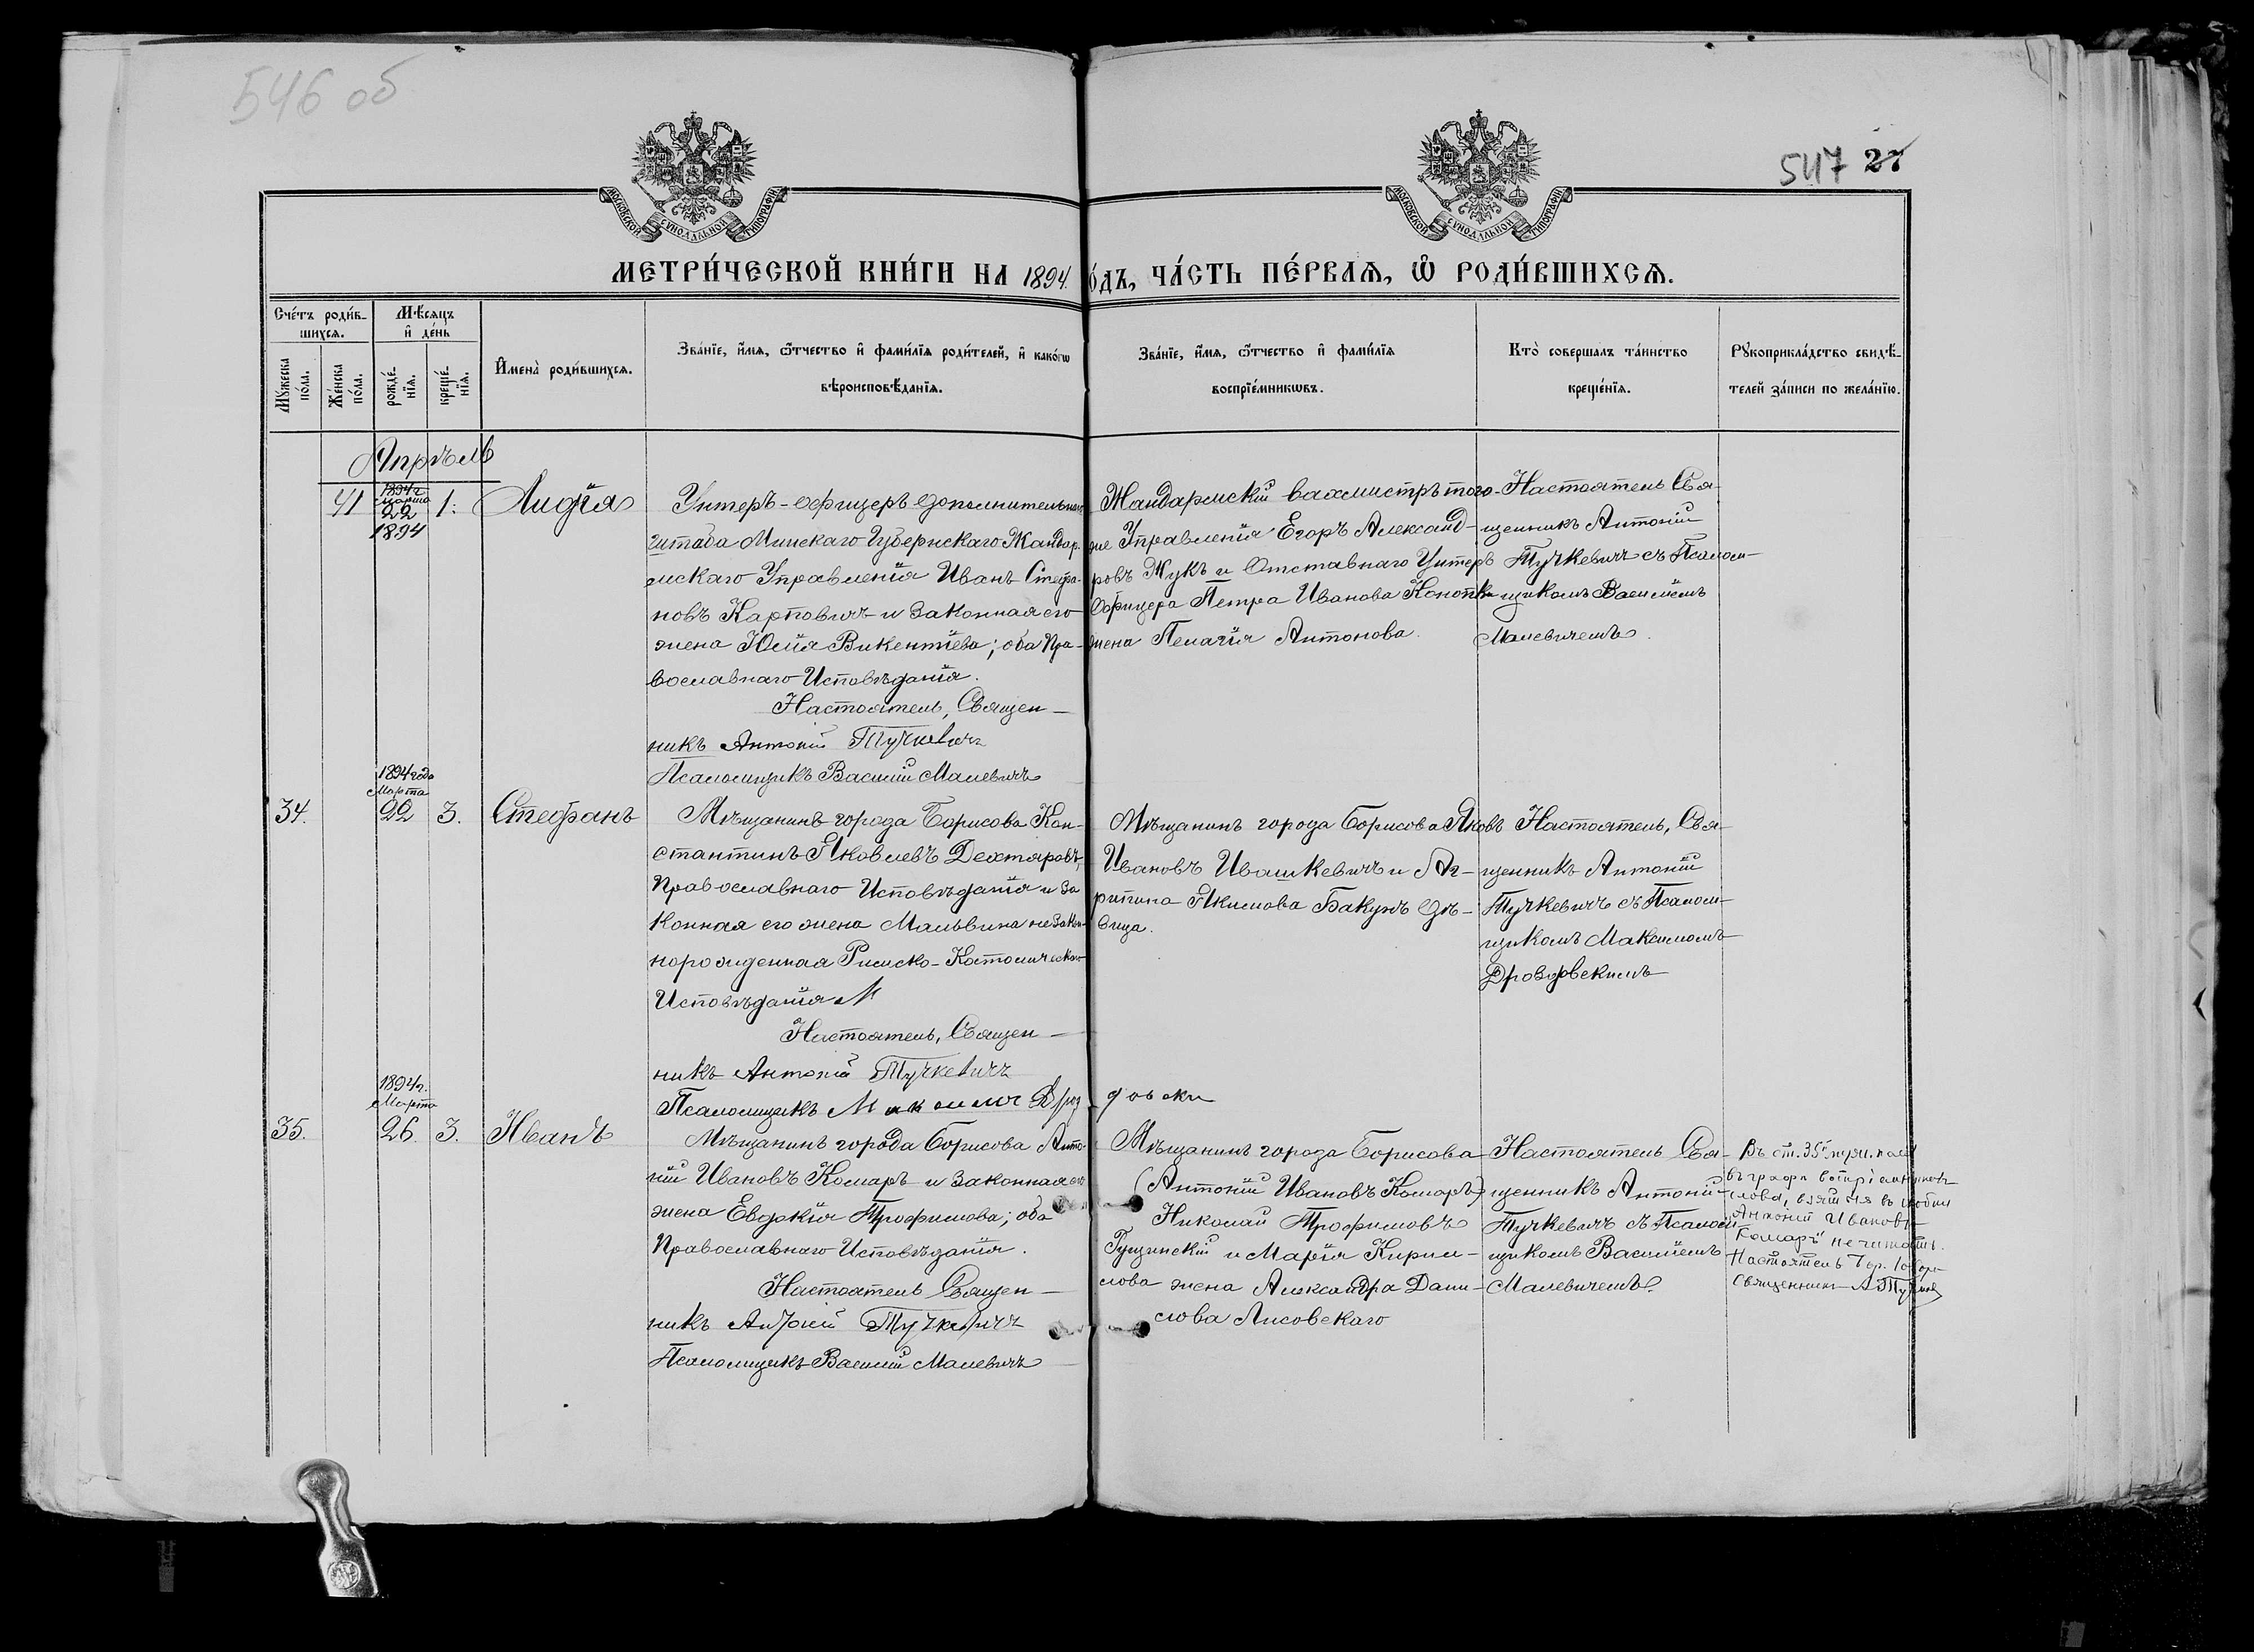 546 об
547 27
МОСКОВСКОЙ СѴНОДАЛЬНОЙ ТИПОГРАФІИ
МОСКОВСКОЙ СѴНОДАЛЬНОЙ ТИПОГРАФІИ
МЕТРИ́ЧЕСКОЙ КНИ́ГИ НА 1894. О́ДЪ, ЧА́СТЬ ПЕ́РВАѦ, Ѽ РОДИ́ВШИХСѦ.
Сче́тъ роди́в-
шихся.
Мѣ́сяцъ
и де́нь
Мꙋ́жеска по́ла.
Же́нска по́ла.
рожде́-
нїя.
креще́-
нїя.
И҆мена̀ роди́вшихся.
Зва́нїе, и҆́мя, ѻ҆́тчество и҆ фами́лїя роди́телей, и҆ како́гѡ
вѣроисповѣ́данїя.
Зва́нїе, и҆́мя, ѻ҆́тчество и҆ фами́лїя
воспрїе́мникѡвъ.
Кто̀ совершалъ та́инство
креще́нїя.
Рꙋкоприкла́дство свидѣ́-
телей за́писи по жела́нїю.
Апрѣль
41
1894 г.
Марта
22
1894
1.
Лидія
Унтеръ-офицеръ дополнительнаго
штаба Минскаго Губернскаго Жандар-
мскаго Управленія Иванъ Стефа-
новъ Карповичъ и законная его
жена Юлія Викентіева; оба Пра-
вославнаго Исповѣданія.
Настоятель, Священ-
никъ Антоній Тучкевичъ
Псаломщикъ Василій Малевичъ
Жандармскій вахмистръ того-
же Управленія Егоръ Александ-
ровъ Жукъ и Отставнаго Унтеръ
Офицера Петра Иванова Конопки
жена Пелагія Антонова.
Настоятель Свя-
щенникъ Антоній
Тучкевичъ съ Псалом-
щикомъ Василіемъ
Малевичемъ.
34.
1894 года
Марта
22
3.
Стефанъ
Мѣщанинъ города Борисова Кон-
стантинъ Яковлевъ Дехтяровъ,
Православнаго Исповѣданія и за
конная его жена Мальвина незакон-
норожденная Римско-Католическаго
Исповѣданія
Настоятель, Священ-
никъ Антоній Тучкевичъ
Псаломщикъ Максимъ Дроздовскі
Мѣщанинъ города Борисова Яковъ
Ивановъ Ивашкевичъ и Аг-
рипина Якимова Бакунъ дѣ-
вица.
Настоятель, Свя-
щенникъ Антоній
Тучкевичъ съ Псалом-
щикомъ Максимомъ
Дроздовскимъ
35.
1894 г.
Марта
26
3.
Иванъ
Мѣщанинъ города Борисова Анто-
ній Ивановъ Комаръ и законная его
жена Евдокія Трофимова; оба
Православнаго Исповѣданія.
Настоятель Священ-
никъ Антоній Тучкевичъ
Псаломщикъ Василій Малевичъ
Мѣщанинъ города Борисова
(Антоній Ивановъ Комаръ)
Николай Трофимовъ
Гущинскій и Марія Кирил-
лова жена Александра Дани-
лова Лисовскаго
Настоятель Свя-
щенникъ Антоній
Тучкевичъ съ Псалом-
щикомъ Василіемъ
Малевичемъ.
Въ ст. 35 муж. пола
въ графѣ воспріемниковъ
слова, взятыя въ скобки
"Антоній Ивановъ
Комаръ" не читать.
Настоятель
Священникъ А. Тучкев